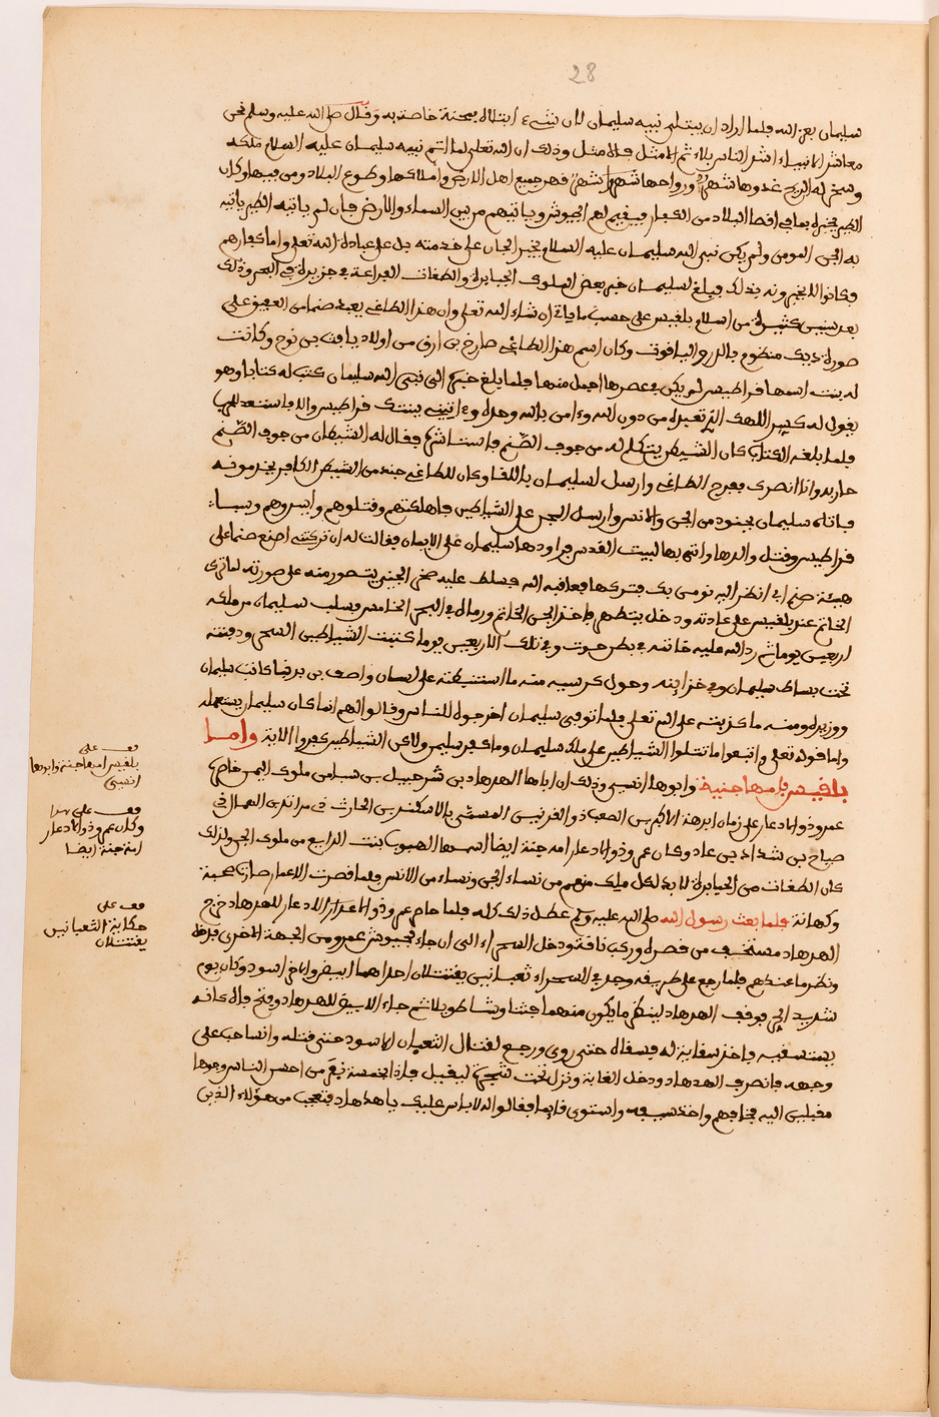 28
سليمان بعز الله فلما اراد ان يبتلى نبيه سليمان لان شيء ابتلاه بمحنة خاصة به وقال صلى الله عليه وسلم نحن
معاشر الانبياء اشر الناس بلاء ثم الامثل فالامثل وذلك ان الله تعلى لما اتم نبيه سليمان عليه السلام ملكه
وسخر له الريح غدوها شهر ورواحها شهر فهر جميع اهل الارض واملاكها وطوع البلاد ومن فيها وكان
الطير يخبره بما في افصا البلاد من الكفار فيقيم لهم الجيوش وياتيهم من بين السماء والارض فان لم ياتيه الطير ياتيه
به الجن المومن ولم يكن نبي الله سليمان عليه السلام يجبر الجان على خدمته بل على عبادة الله تعلى واما كفارهم
فكانوا لا يخبرونه بذلك فبلغ لسليمان خبر بعض الملوك الجبابرة والطغات الفراعة في جزيرة في البحر وذلك
بعد سنين كثيرة من اسلام بلفيس على حسب ما ياتي ان شاء الله تعلى وان هذا الطاغى يعبد صنما من العفيق على
صورة ديك منظوم بالدر والياقوت وكان اسم هذا الطاغى صارخ بن ارق من اولاد يافث بن نوح وكانت
له بنت اسمها فراطيس لم يكن في عصرها اجمل منها فلما بلغ خبره الى نبي الله سليمان كتب له كتابا وهو
يقول له كسر اللهك الذي تعبده من دون الله وءامن بالله وحده وءاتيني ببنتك فراطيس والا فاستعد للحرب
فلما بلغه الكتاب كان الشيطن يتكلم له من جوف الصنم فاستشاره فقال له الشيطان من جوف الصنم
حاربه وانا انصرك فبرح الطاغى وارسل لسليمان باللقا وكان للطاغى جند من الشيطن الكافر يخدمونه
فاتاه سليمان بجنود من الجن والانس وارسل الريح على الشياطين فاهلكتهم وقتلوهم واسروهم وسبا
فراطيس وقتل والدها واتى بها لبيت القدس فراودها سليمان على الايمان فقالت له ان تركتني اصنع صنما على
هيئة صنم ابي انظر اليه نومن بك فتركها فعافبه الله فسلط عليه صخر الجني يتصور منه على صورته لما ترك
الخاتم عند بلفيس على عادته ودخل يتطهر فاخذ الجن الخاتم ورماه في البحر الخامس وسلب سليمان من ملكه
اربعين يوما ثم رد الله عليه خاتمه في بطن حوت وفي تلك الاربعين يوما كتبت الشياطين السحر ودفنته
تحت بساط سليمان وفي خزاينه وحول كرسيه منه ما استنبطته على لسان واصف بن برخيا كاتب سليمان
ووزيره ومنه ما كذبته على الله تعلى فلما توفى سليمان اخرجوه للناس وقالوا لهم انما كان سليمان يستعمله
واما قوله تعلى واتبعوا ما تتلوا الشياطين على ملك سليمان وما كفر سليمن ولاكن الشياطين كفروا الاية واما
بلفيس فامها جنية وابوها انسى وذلك ان اباها الهدهاد بن شرحبيل بن سبا من ملوك اليمن خلف
عمرو ذو الاذعار على زمان ابرهة الاكبر بن الصعب ذو القرنين المسمى بالاسكندر بن الحارث
بن شداد بن عاد وكان عمرو ذو الاذعار امه جنة ايضا اسمها الهيوب بنت الرابع من ملوك الجن ولذلك
كان الطغات من الجبابرة لا بد لكل ملك منهم من نساء الجن ونساء من الانس فلما قصرت الاعمار صارت صحبة
وكهانة فلما بعث رسول الله صلى الله عليه وسلم عطل ذلك كله فلما عمرو ذو الاذعار للهدهاد خرج
الهدهاد مستخف من قصره وركب ناقة ودخل السحراء الى ان جاء بجيوش عمرو من الجهة الاخرى
ونظر ما عندهم فلما رجع على طريقه وجد في السحراء ثعبانين يقتتلان احداهما ابيض والاخر اسود وكان يوم
شديد الحر فوقف الهدهاد لينظر ما يكون منهما فتناوشا طويلا ثم جاء الابيض للهدهاد وفتح فاه كانه
يستسقيه فاخذ سقاية له فسقاه حتى روى ورجع لقتال الثعبان الاسود حتى قتله وانساحب على
وجهه فانصرف الهدهاد ودخل الغابة ونزل تحت شجرة ليقيل فاذا بخمسة نفر من احسن الناس وجوها
مقبلين اليه فخافهم واخذ سيفه واستوى قايما فقالوا له لا باس عليك يا هدهاد فتعجب من هؤلاء الذين
قف على
بلفيس امها جنية وابوها
انسى
قف على هذا
وكان عمرو ذو الاذعار
امه جنة ايضا
قف على
حكاية الثعبانين
يقتتلان